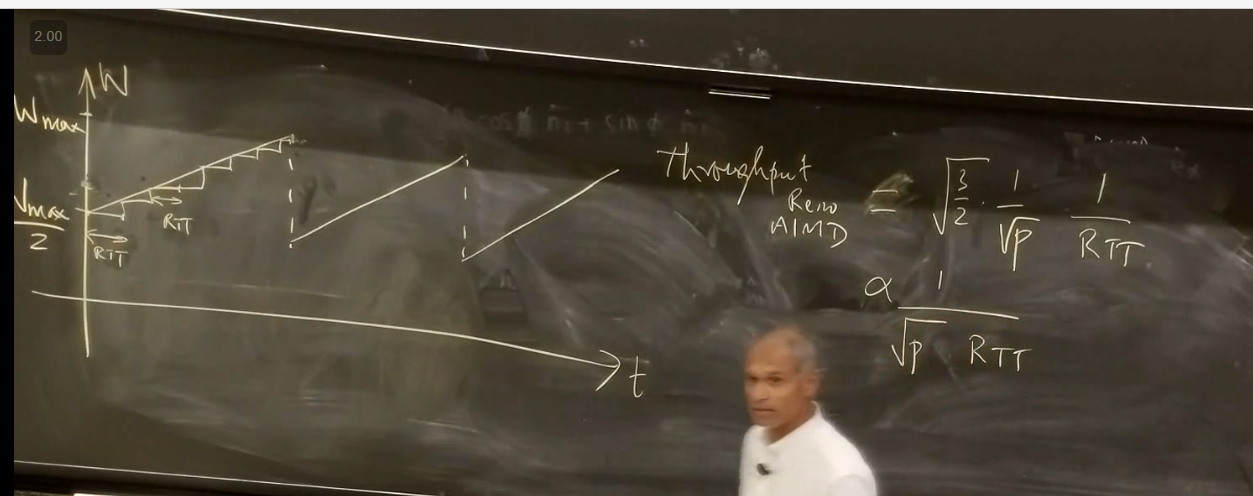 2.00
W
Wmax
Wmax
2
RTT
RTT
t
Throughput
Reno
AIMD
= √3/2 · 1/√p 1/RTT
α 1/√p RTT